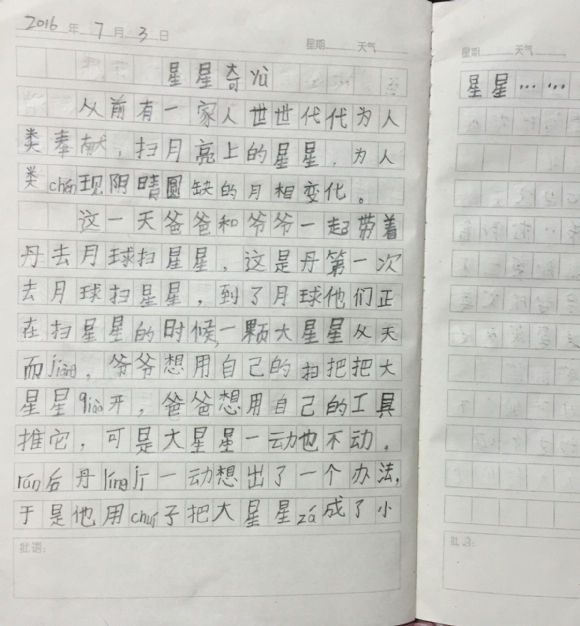 2016 年 7 月 3 日 星期 天气
星星奇yù
从前有一家人世世代代为人
类奉献，扫月亮上的星星，为人
类chéng现阴晴圆缺的月相变化。
这一天爸爸和爷爷一起带着
丹去月球扫星星，这是丹第一次
去月球扫星星，到了月球他们正
在扫星星的时候，一颗大星星从天
而jiàng，爷爷想用自己的扫把把大
星星qiào开，爸爸想用自己的工具
推它，可是大星星一动也不动。
rán后丹líng jī一动想出了一个办法，
于是他用chuí子把大星星zá成了小
批语：
星期 天气
星星……
批语：